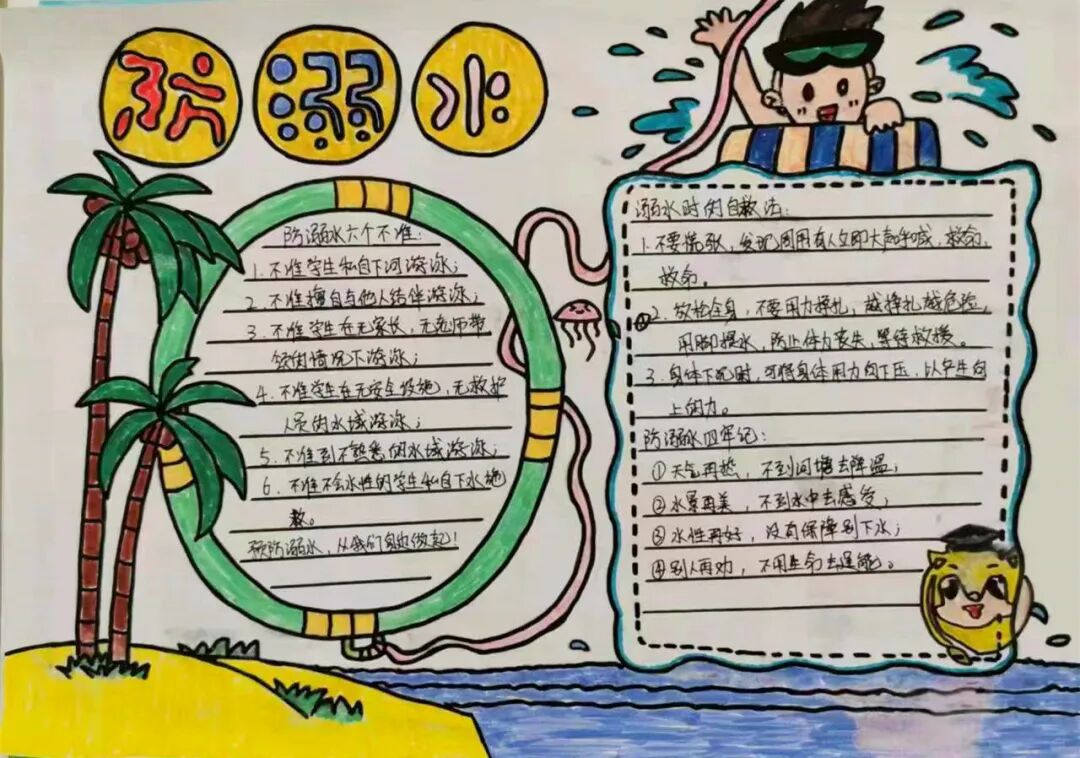 防溺水
防溺水六个不准:
1.不准学生私自下河游泳;
2.不准擅自与他人结伴游泳;
3.不准学生在无家长,无老师带
领的情况下游泳;
4.不准学生在无安全设施,无救护
人员的水域游泳;
5.不准到不熟悉的水域游泳;
6.不准不会水性的学生私自下水施
救。
预防溺水,从我们身边做起!
溺水时的自救法:
1.不要慌张,发现周围有人立即大声呼喊,救命,
救命。
2.放松全身,不要用力挣扎,越挣扎越危险,
用脚踢水,防止体力丧失,等待救援。
3.身体下沉时,可将身体用力向下压,以产生向
上的力。
防溺水四牢记:
①天气再热,不到河塘去降温;
②水景再美,不到水中去感受;
③水性再好,没有保障别下水;
④别人再劝,不用生命去逞能。